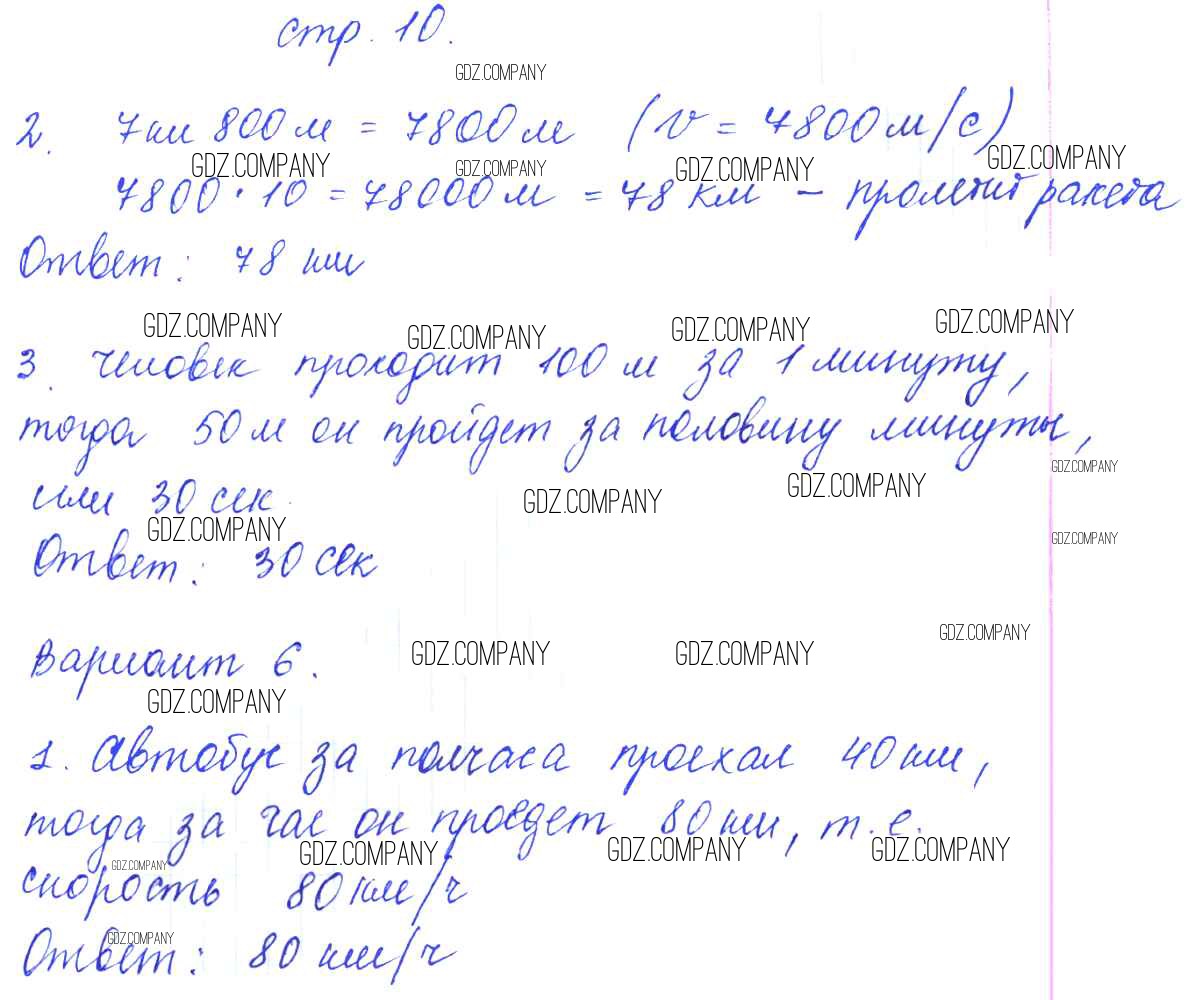 стр. 10.
GDZ.COMPANY
2. 7км 800м = 7800м (v = 7800м/с)
GDZ.COMPANY GDZ.COMPANY GDZ.COMPANY GDZ.COMPANY
7800 · 10 = 78000м = 78 км – пролетит ракета
Ответ: 78 км
GDZ.COMPANY GDZ.COMPANY GDZ.COMPANY GDZ.COMPANY
3. Человек проходит 100 м за 1 минуту,
тогда 50м он пройдет за половину минуты,
GDZ.COMPANY
или 30 сек.
GDZ.COMPANY GDZ.COMPANY GDZ.COMPANY
GDZ.COMPANY
Ответ: 30 сек
GDZ.COMPANY
Вариант 6.
GDZ.COMPANY GDZ.COMPANY
GDZ.COMPANY
1. Автобус за полчаса проехал 40км,
тогда за час он проедет 80км, т.е.
GDZ.COMPANY GDZ.COMPANY GDZ.COMPANY GDZ.COMPANY
скорость 80км/ч
GDZ.COMPANY
Ответ: 80 км/ч